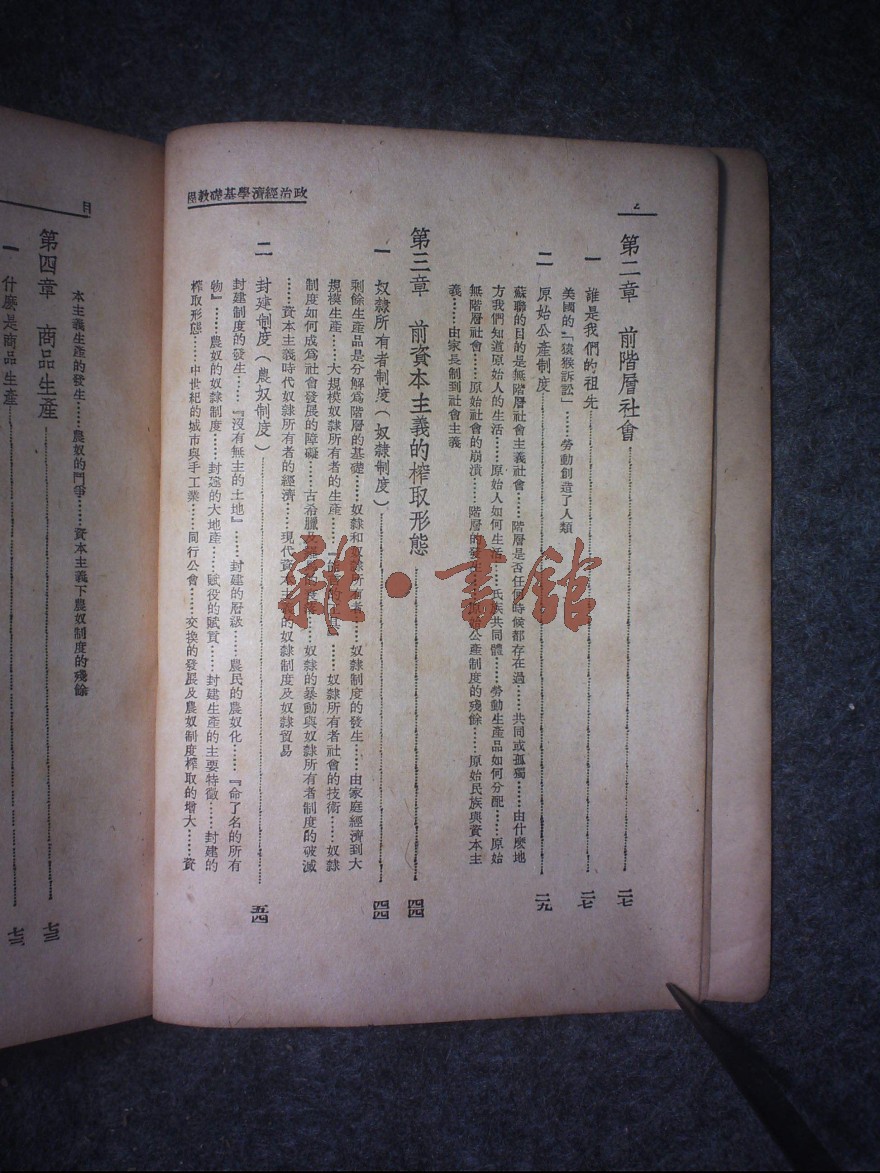 政治經濟學基礎教程
2
第二章 前階層社會……二七
一 誰是我們的祖先……二七
美國的「猿猴訴訟」……勞動創造了人類
二 原始公產制度……二九
蘇聯的目的是無階層社會主義社會……階層是否任何時候都存在過……共同或孤獨……由什麼地
方我們知道原始人的生活……原始人如何生活……氏族共同體……勞動生產品如何分配……原始
無階層社會……原始社會的崩潰……階層的發生……原始公產制度的殘餘……原始民族與資本主
義……由家長制到社會主義
第三章 前資本主義的榨取形態……四四
一 奴隸所有者制度(奴隸制度)……四四
剩餘生產品是分解爲階層的基礎……奴隸和奴隸所有者……奴隸制度的發生……由家庭經濟到大
規模生產……大規模奴隸所有者的生產……奴隸所有者社會的技術……奴隸
制度如何成爲社會發展的障礙……古希臘……奴隸的暴動與奴隸所有者制度的破滅
……資本主義時代奴隸所有者的經濟……現代資本主義的奴隸制度及奴隸貿易
二 封建制度(農奴制度)……五四
封建制度的發生……『沒有無主的土地』……封建的層級……農民的農奴化……『命了名的所有
物』……農奴的奴隸制度……封建的大地產……賦役的賦質……封建生產的主要特徵……封建的
榨取形態……中世紀的城市與手工業……同行公會……交換的發展及農奴制度榨取的增大……資
目
本主義生產的發生……農奴的鬥爭……資本主義下農奴制度的殘餘
第四章 商品生產……七三
一 什麼是商品生產……七三
雜·書館